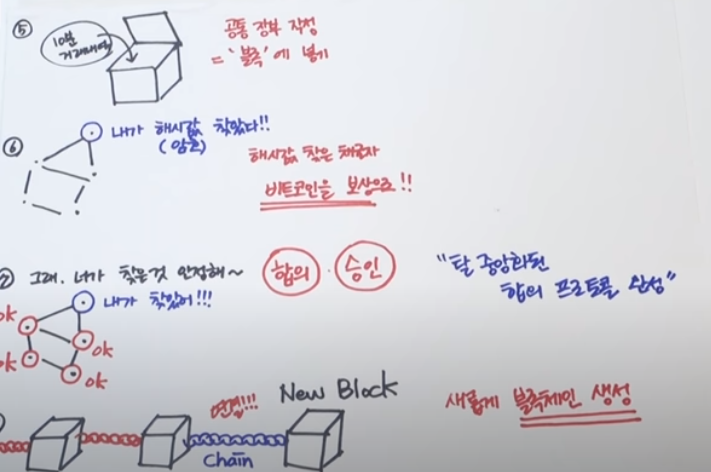 ⑤
10분
거래내역
공통 장부 작성
= '블록'에 넣기
⑥
내가 해시값 찾았다!!
(암호)
해시값 찾은 채굴자
비트코인을 보상으로!!
그래. 너가 찾은것 인정해~
합의 · 승인
"탈 중앙화된
합의 프로토콜 달성"
내가 찾았어!!!
ok
ok
ok
ok
연결!!!
New Block
Chain
새롭게 블록체인 생성